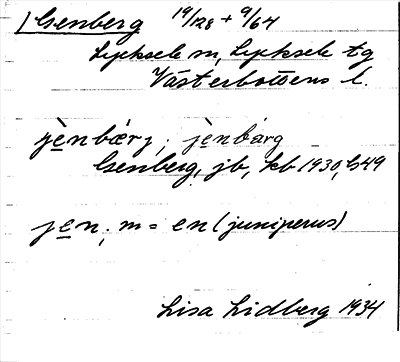 Genberg 19/128 + 9/64
Lycksele sn, Lycksele tg
Västerbottens l.
jènbærj, jènbàrg
Genberg, jb, kb 1930, G49
jen, m = en (juniperus)
Lisa Lidberg 1934